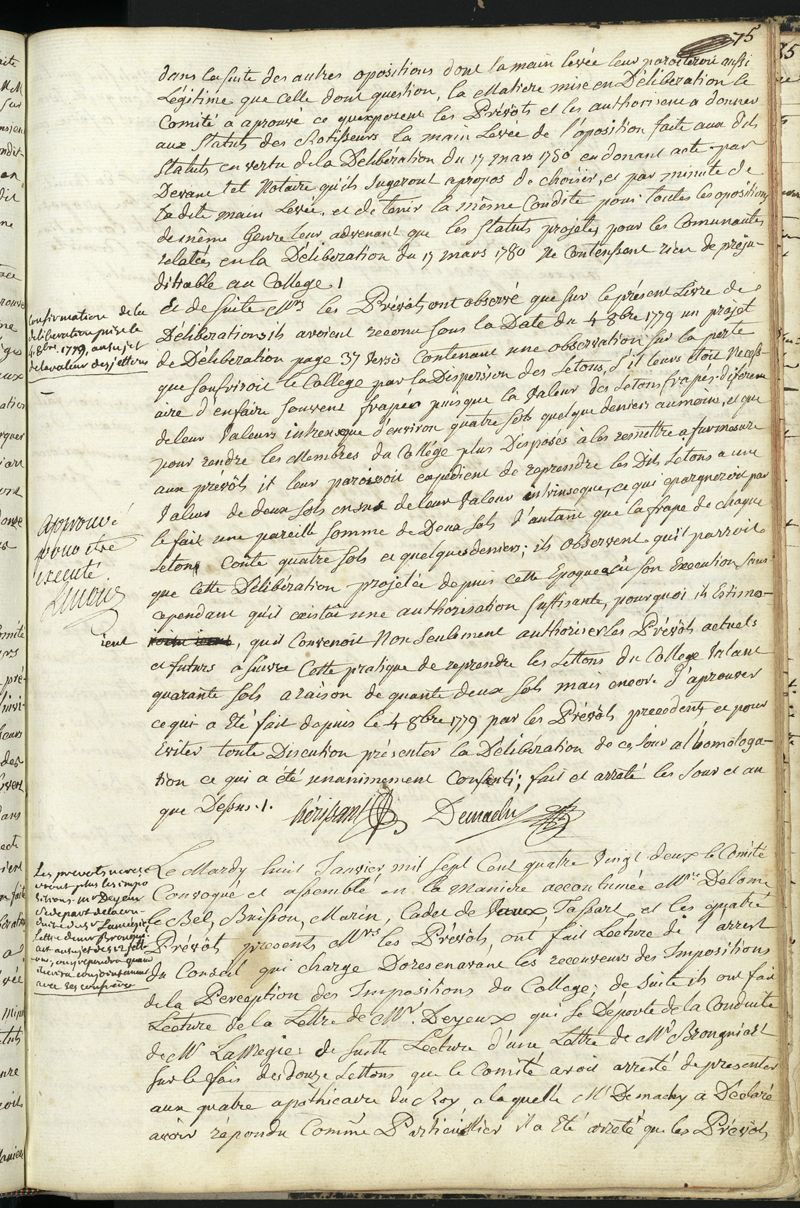 75
dans la suite des autres opositions dont la main levée leur paroiteroit aussi
Légitime que celle dont question, la Matiere mise en Déliberation le
Comité a aprouvé ce qu'exposent les Prévôts et les authorisent a donner
aux Statuts des Rotisseurs la main Levée de l'oposition faite aux dits
Statuts en vertu de la Déliberation du 17 mars 1780 en donant acte par
Devant tel Notaire qu'ils Jugeront apropos de choisir, et par minute de
la dite main Levée, et de tenir la même Condite pour toutes les opositions
de même Genre leur advenant que les Statuts projetés pour les Comunautés
relatées en la Déliberation du 17 mars 1780 Ne Contenssent rien de préju-
ditiable au College /
Confirmation de la
deliberation prise le
4 8bre 1779, au sujet
de la valeur des jettons
Et de suite Mrs les Prévôts ont observé que sur le présent Livre de
Déliberations ils avoient reconu sous la Date du 4 8bre 1779 un projet
de Déliberation page 37 Verso Contenant une observation sur la perte
que soufriroit le College par la Dispersion des Jetons, s'il leurs étoit Necess-
aire d'en faire souvent fraper puisque la Valeur des Jetons frapés diferent
de leur Valeurs intrenseque d'environ quatre sols quelque deniers au moins, et que
pour rendre les Membres du Collége plus Disposés à les remettre a fur mesure
aux prévôts il leur paroissoit expedient de reprendre les Dits Jetons a une
Valeur de deux Sols en sus de leur Valeur intrinseque, ce qui epargneroit par
le fait une pareille somme de Deux Sols d'autant que la frape de chaque
Jetons Coute quatre Sols et quelques deniers; ils observent qu'il parroit
que cette Déliberation projetée depuis cette Epoque a eu son execution sans
cependant qu'il existât une authorisation suffisante, pourquoi ils Estimo-
ient, qu'il Convenoit Non Seulement authoriser les Prévôts actuels
et futurs a suivre Cette pratique de reprendre les Jettons du College Valant
quarante Sols a raison de quarante deux Sols mais encore d'aprouver
ce qui a été fait depuis le 4 8bre 1779 par les Prévôts precedents et pour
Eviter toute Discution présenter la Déliberation de ce Jour a l'homologa-
tion ce qui a été unanimement Consenti; fait et arreté les Jour et an
que Dessus /. Hérissant Demachy
approuvé
pour être
executé
Lenoir
Les prevots ne rece
vront plus les impo
sitions. Mr Deyeux
se deporte de la con
duite du Sr Lamegie
lettre de Mr Brongni
art au sujet des 12 jett
ons,
avec ses confreres
Le Mardy huit Janvier mil sept Cent quatre Vingt deux le Comité
Convoqué et assemblé en la Maniere accoutumée Mrs Delane
le Bel, Brisson, Marin, Cadet de Vaux, Tassart et les quatre
Prévôts presents Mrs les Prévôts, ont fait Lecture de l'arrest
du Conseil qui charge Doresenavant les receveurs des Impositions
de la Perception des Impositions du College; de Suite ils ont fait
Lecture de la Lettre de Mr. Deyeux qui se Déporte de la Conduite
de Mr Lamegie; de suitte Lecture d'une Lettre de Mr Brongniart
sur le fait des douze Jettons que le Comité avoit arresté de presenter
aux quatre apothicaire du Roy a laquelle Mr Demachy a Déclaré
avoir répondu Comme Particuillier il a été arreté que les Prévôts